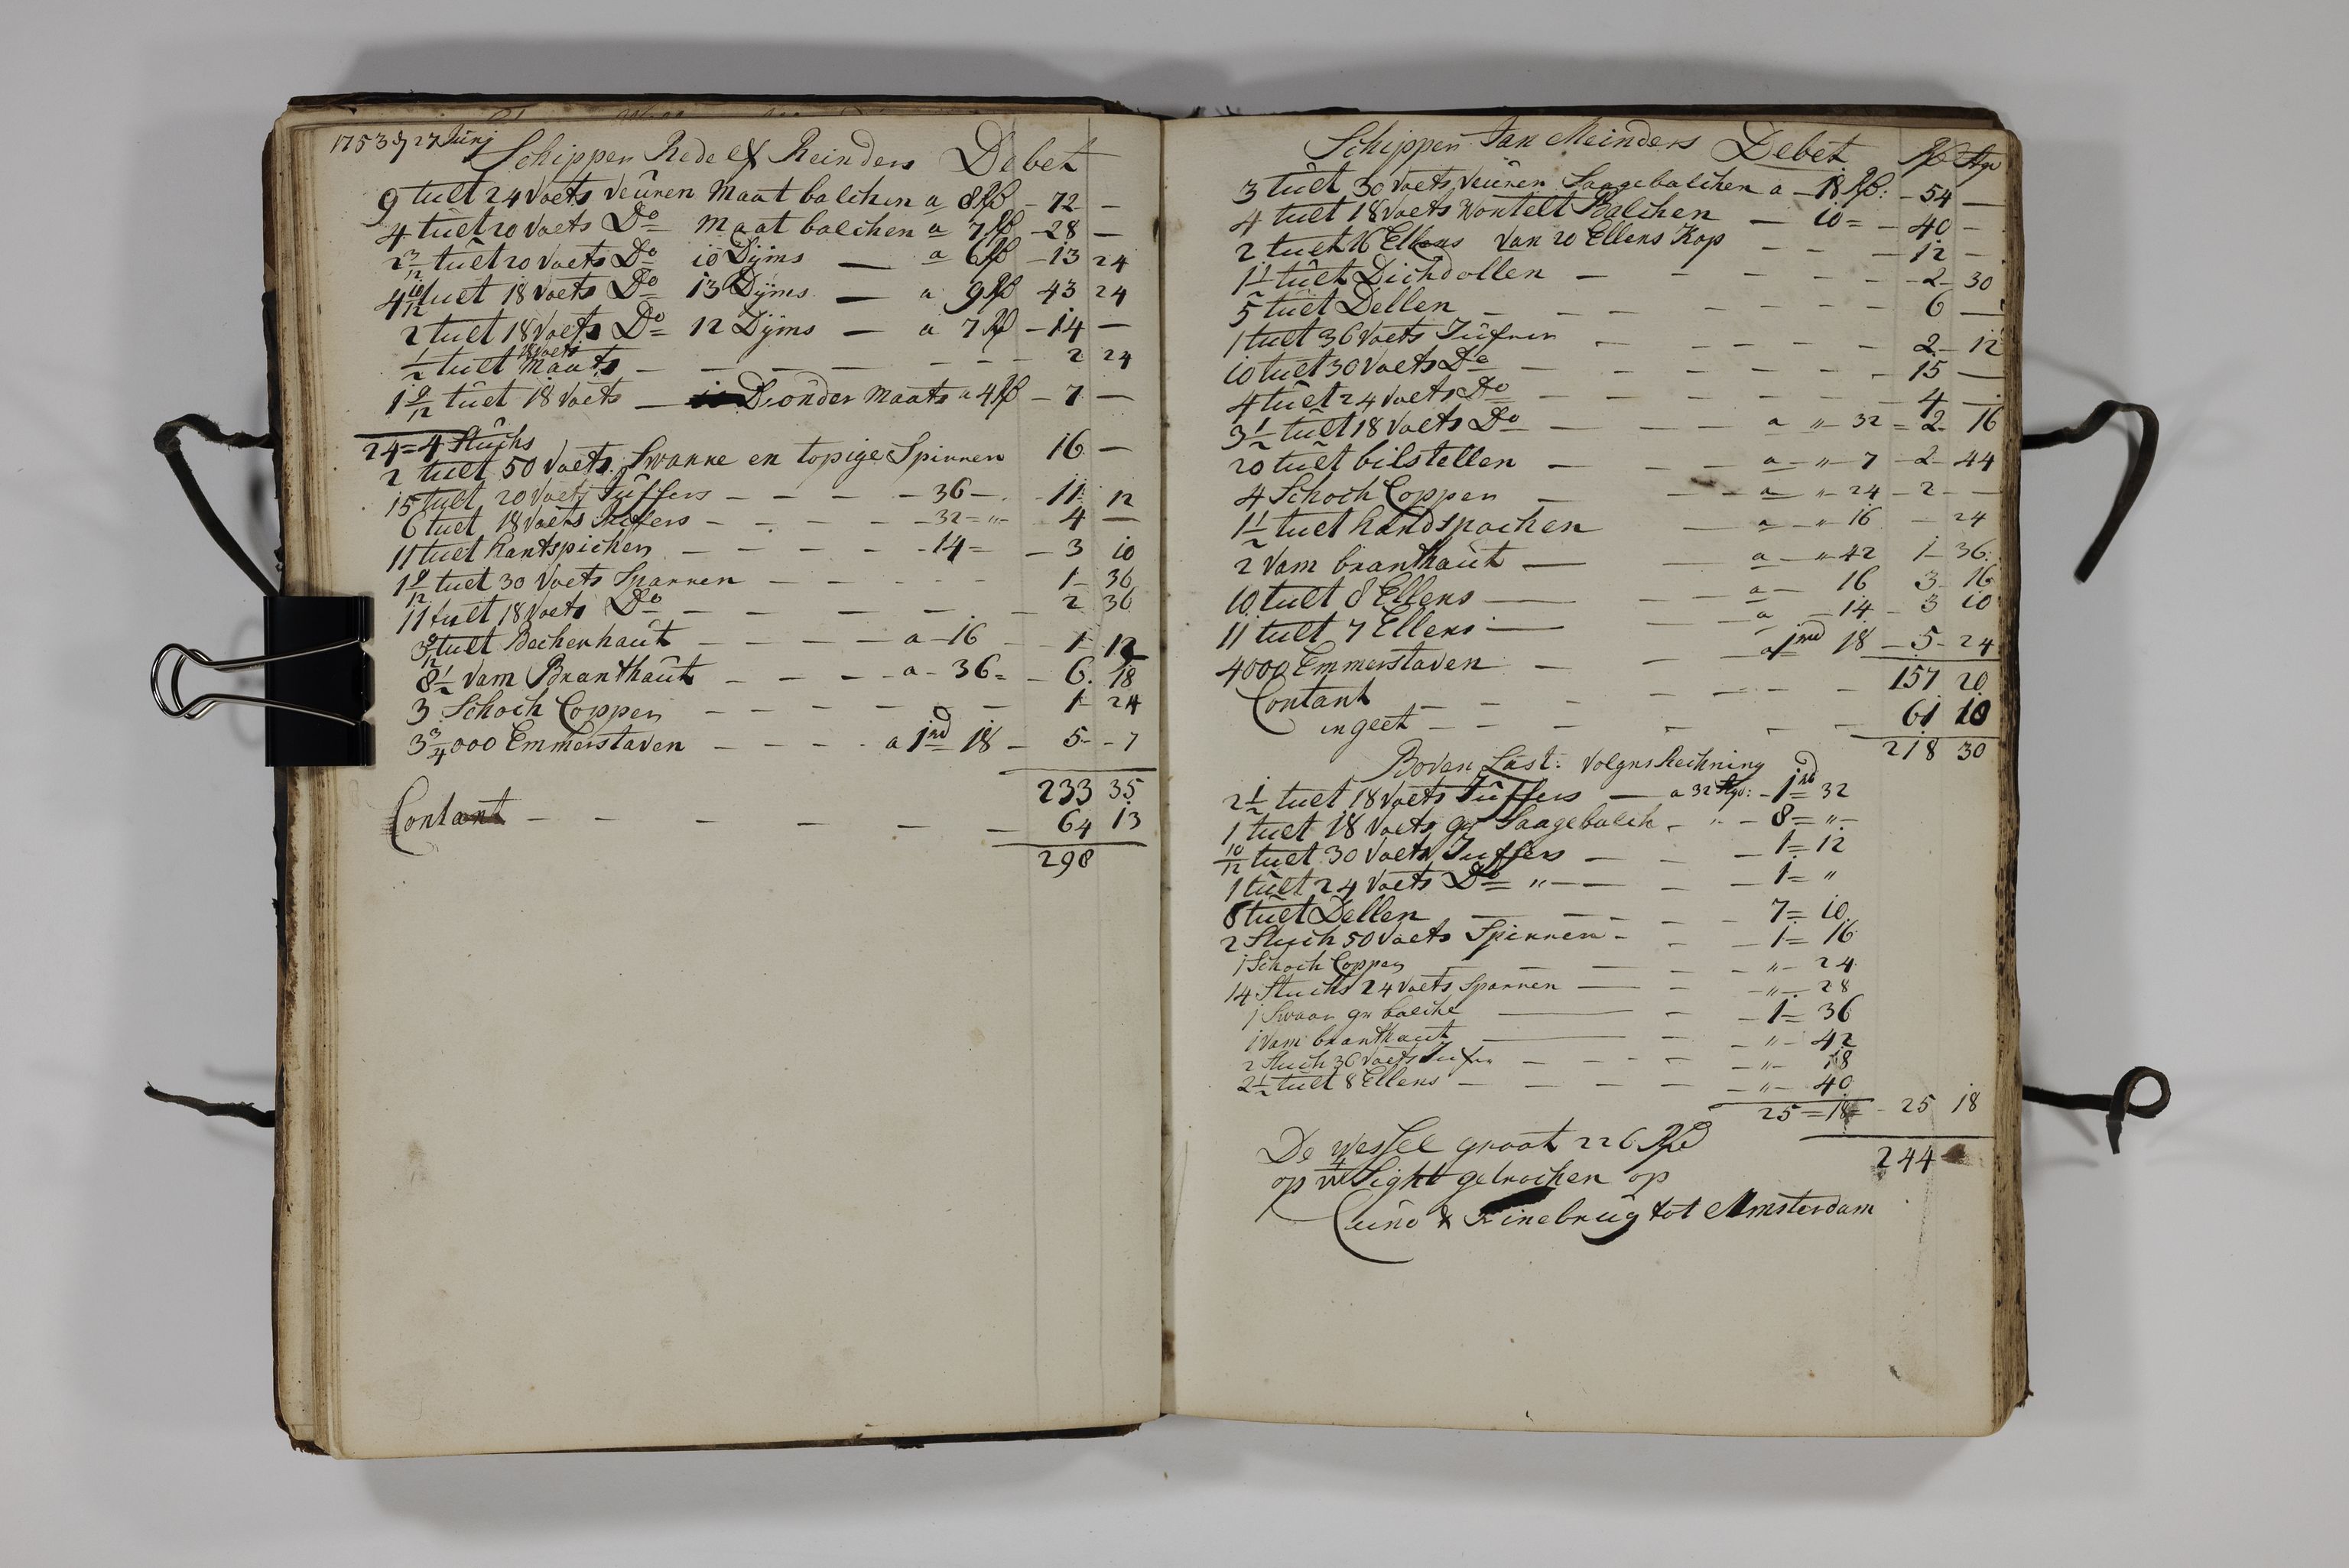 1753 d 27 Junij
Schipper Rede & Reinders Debet
9 tult 24 Voets veuren maat balchen a 8 Rd - 72 -
4 tult 20 Voets Do maat balchen a 7 Rd - 28 -
2 3/12 tult 20 Voets Do 10 Dijms — a 6 Rd - 13 24
4 10/12 tult 18 Voets Do 13 Dijms — a 9 Rd 43 24
2 tult 18 Voets Do 12 Dijms — a 7 Rd - 14 -
1/2 tult 18 Voets Maats - - - - - - 2 24
1 9/12 tult 18 Voets — Dronder Maats a 4 Rd - 7 —
24 = 4 Stuchs
2 tult 50 Voets Swanke en topige Spirren 16 -
15 tult 20 Voets Juffers - - - - 36 - 11 12
6 tult 18 Voets Juffers - - - - 32 = " - 4 —
11 tult hantspichen - - - - - 14 = - 3 10
1 9/12 tult 30 Voets Sparren - - - - 1 - 36
11 tult 18 Voets Do - - - - - - 2 36
3 9/12 tult Bechenhaut - - - - a - 16 - 1 - 12
8 1/2 Vam Branthaut - - - - a - 36 = - 6. 18
3 Schoch Coppen - - - - - - 1 - 24
3 3/4 000 Emmerstaven - - - - a 1 Rd 18 - 5 - - 7
233 35
Contant - - - - - - 64 13
298
Schipper Jan Meinders Debet Rd Stv
3 tult 30 Voets Veuren Saagebalchen a - 18 Rd: - 54 —
4 tult 18 Voets Wontelt Balchen — 10 = - 40 -
2 tult 16 Ellens Van 20 Ellens Kop - - - 12 -
1 1/2 tult Dichdollen - - - - - 2 - 30
5 tult Dellen - - - - - - 6 —
1 tult 36 Voets Jufren - - - - - 2 - 12
10 tult 30 Voets Do - - - - - - 15 —
4 tult 24 Voets Do - - - - - - 4 -
3 1/2 tult 18 Voets Do - - - a " - 32 = 2 - 16
20 tult bilstellen - - - a - " - 7 - 2 - 44
4 Schoch Coppen - - - a - " - 24 - 2 - -
1 1/2 tult handspachen — a - " 16 - 24
2 Vam branthaut — — a - " - 42 1 - 36
10 tult 8 Ellens — - - a - 16 3 - 16
11 tult 7 Ellens — - - a - 14 - 3 10
4000 Emmerstaven - - a 1 Rd 18 - 5 - 24
157 20
Contant
in geet - - - - - 61 10
218 30
Boven Last: Volgens Rechning
2 1/2 tult 18 Voets Juffers — a 32 Stv: - 1 = 32
1 tult 18 Voets gr Saagebalch - " - 8 = " -
10/12 tult 30 Voets Juffers - - - 1 = 12
1 tult 24 Voets Do " — - - 1 = "
8 tult Dellen - - - - 7 = 10
2 Stuch 50 Voets Spirren - - - 1 = 16
1 Schoch Coppen - - - - " - 24
14 Stuchs 24 Voets Sparren — - - " - 28
1 Swaar gr balche — - - 1 = 36
1 Vam branthaut — - - " - 42
2 Stuch 36 Voets Jufren - - - - " - 18
2 1/2 tult 8 Ellens - - - - - " - 40
25 = 18 - 25 18
De Wessel groot 226 Rd 244
op 4 w Sight getrochen op
Cuno & Finebrug tot Amsterdam